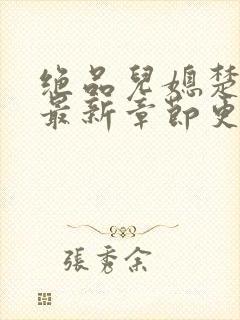 绝品兒媳楚
最新章節更
張秀余